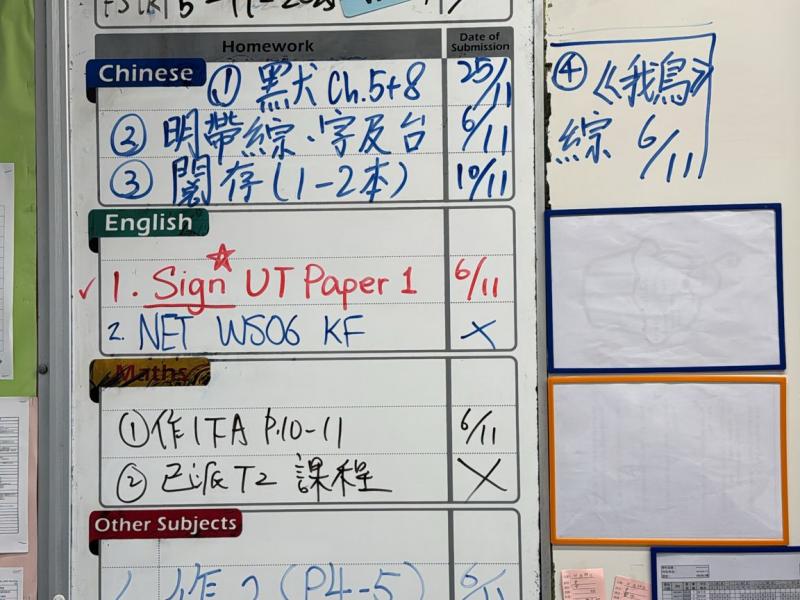 Homework
Date of Submission
Chinese
① 黑犬 Ch.5+8 25/11
② 明帶綜、字及台 6/11
③ 閣存(1-2本) 10/11
④《我鳥》
綜 6/11
English
✓ 1. Sign UT Paper 1 6/11
2. NET WS06 KF ×
Maths
① 作1下A P.10-11 6/11
② 已派T2 課程 ×
Other Subjects
作2(P4-5) 6/11